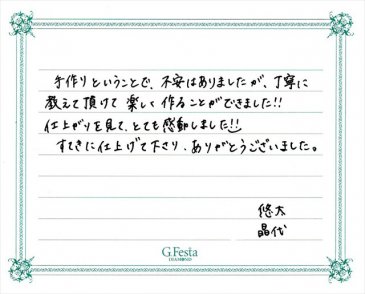 手作りということで、不安はありましたが、丁寧に
教えて頂けて楽しく作ることができました!!
仕上がりを見て、とても感動しました!!
すてきに仕上げて下さり、ありがとうございました。
悠太
晶代
G.Festa
DIAMOND